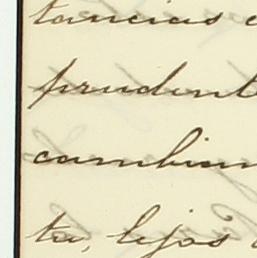 tancias
prudent
cambian
ta, lejos